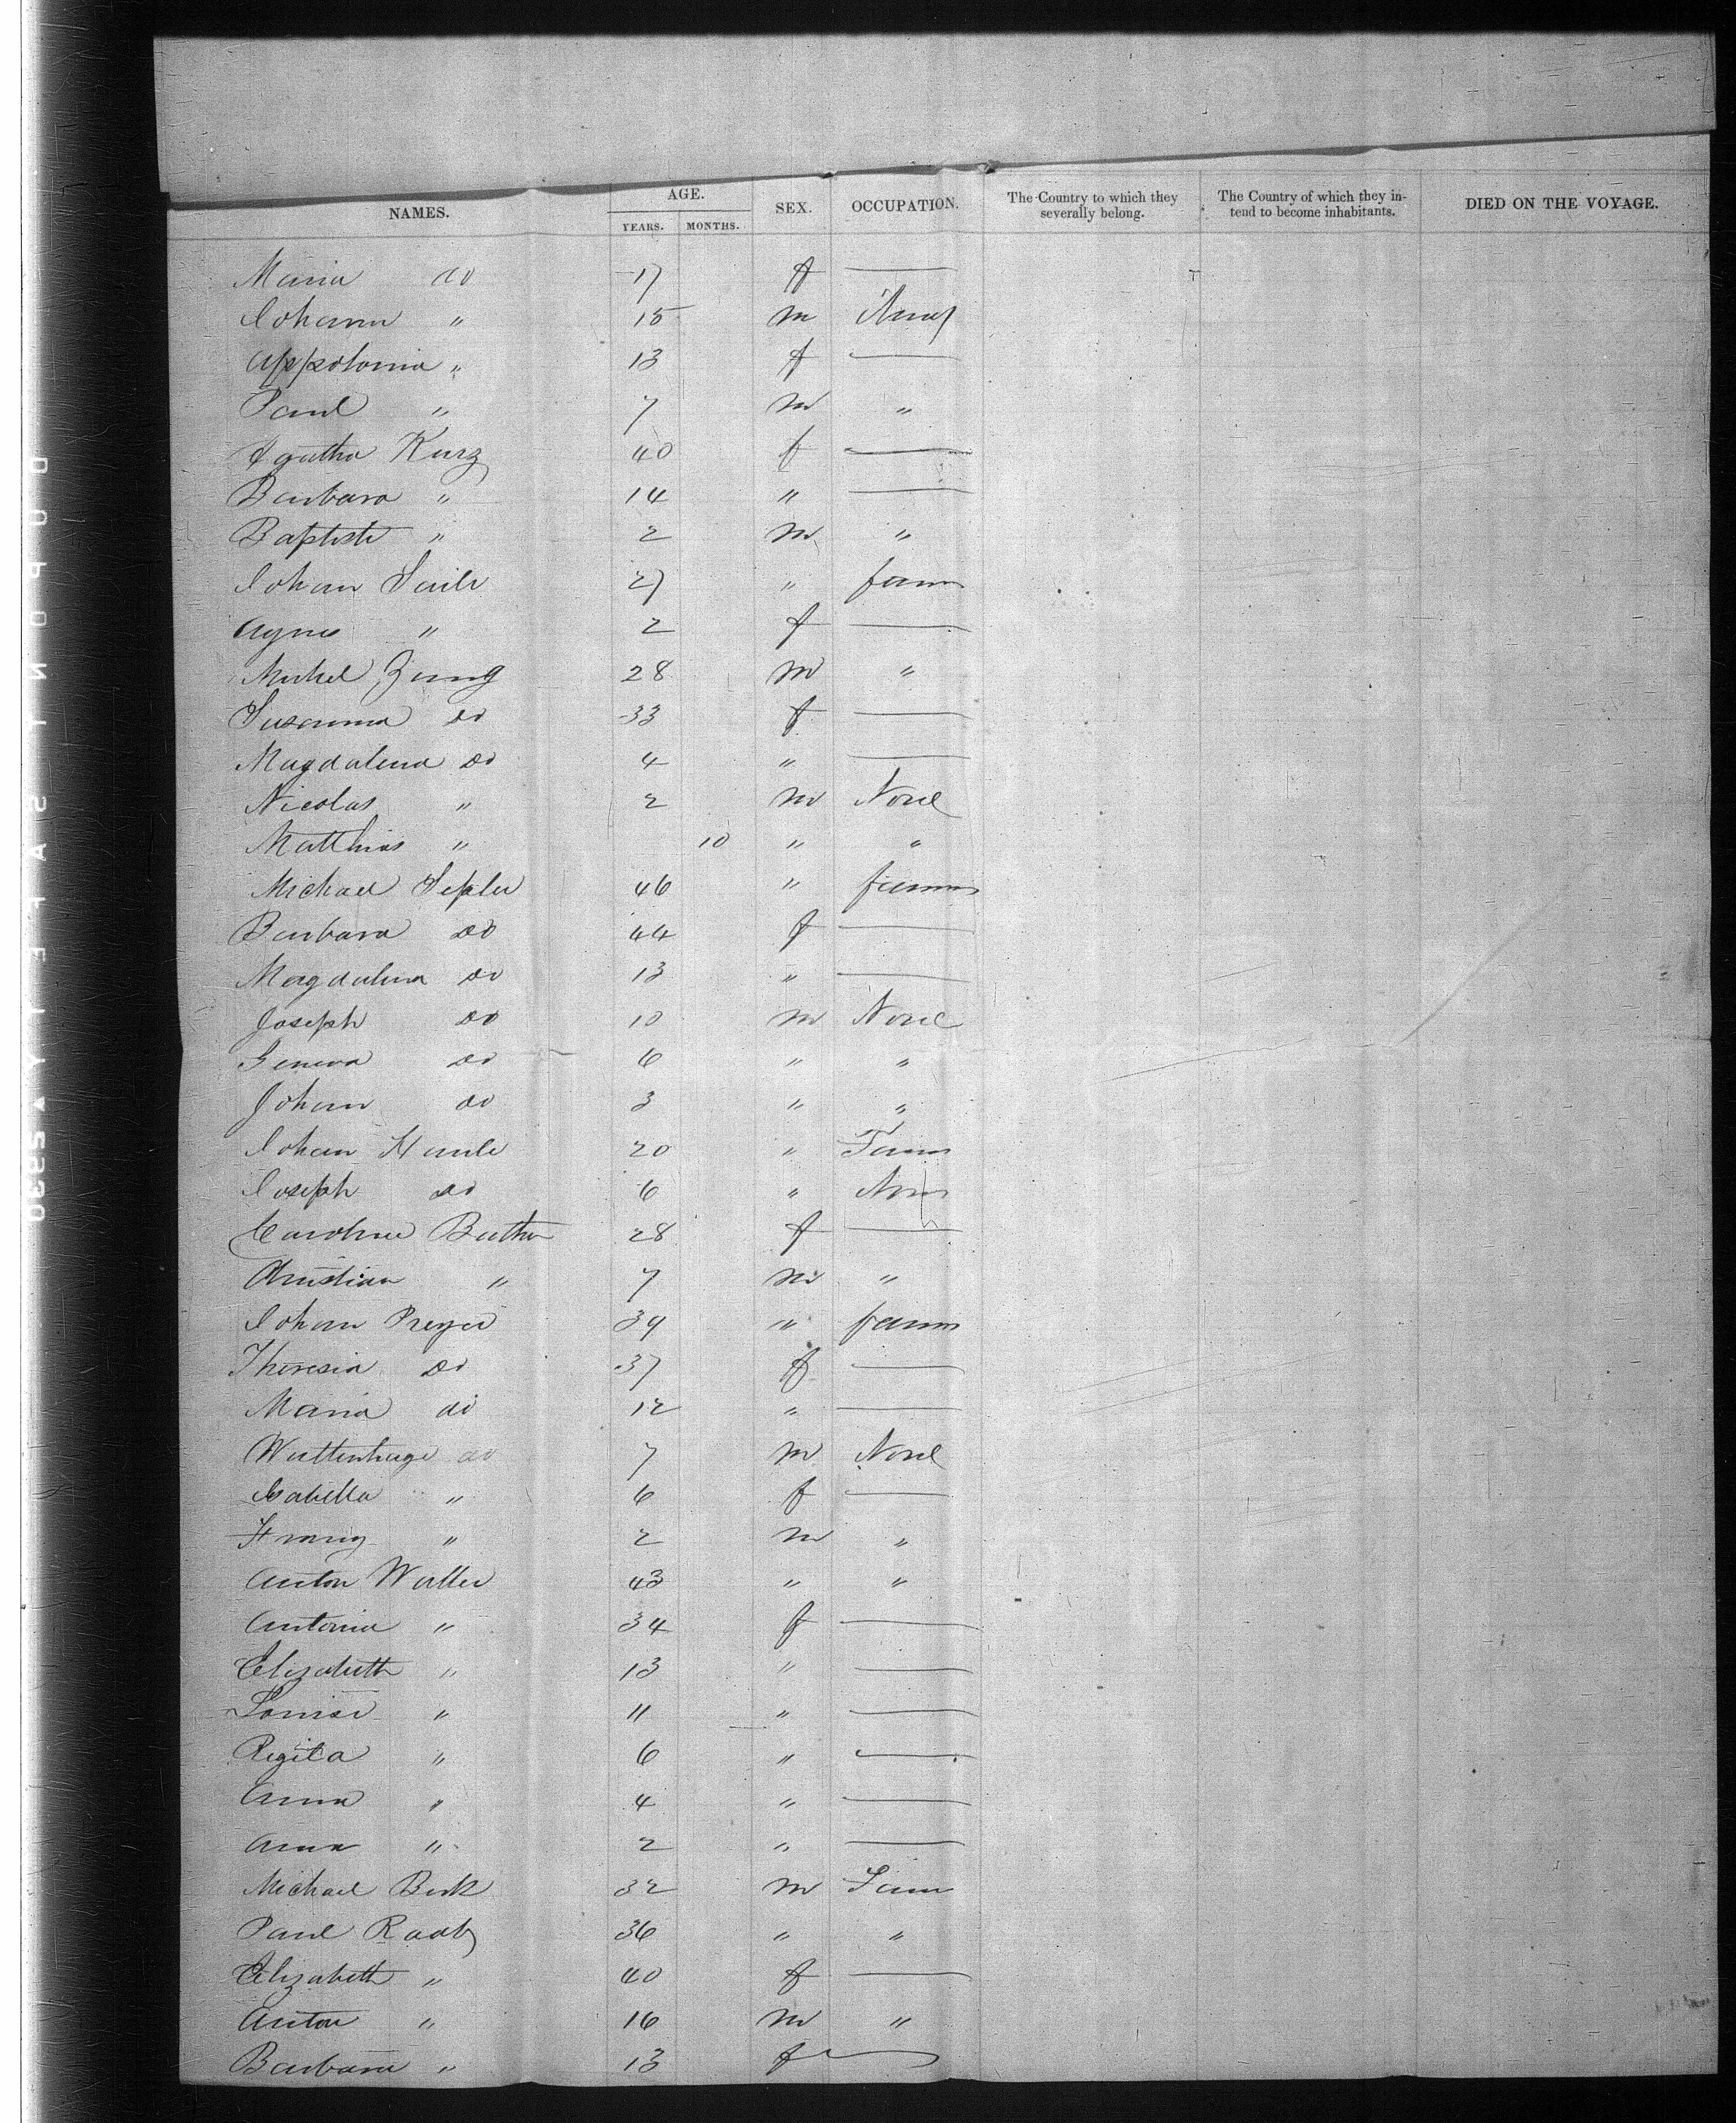 NAMES. AGE. YEARS. MONTHS. SEX. OCCUPATION. The Country to which they severally belong. The Country of which they intend to become inhabitants. DIED ON THE VOYAGE.
Maria do 17 f —
Johann " 15 m
Appolonia " 13 f —
Paul " 7 m "
Agatha Kurz 40 f —
Barbara " 14 " —
Baptiste " 2 m "
Johan Saile 27 " farm
Agnes " 2 f —
Michel Zung 28 m "
Susanna do 33 f —
Magdalena do 4 " —
Nicolas " 2 m None
Matthias " 10 " "
Michael Sepler 46 " farmer
Barbara do 44 f —
Magdalena do 13 " —
Joseph do 10 m None
Geneva do 6 " "
Johan do 3 " "
Johan Haule 20 " Farm
Joseph do 6 " None
Caroline 28 f —
Christian " 7 m "
Johan Preyer 39 " farm
Theresia do 37 f —
Maria do 12 " —
do 7 m None
Isabella " 6 f —
" 2 m "
Anton Walter 43 " "
Antonia " 34 f —
Elizabeth " 13 " —
Louise " 11 " —
Regita " 6 " —
Anna " 4 " —
Anna " 2 " —
Michael Beck 32 m Farm
Paul Raab 36 " "
Elizabeth " 40 f —
Anton " 16 m "
Barbara " 13 f —